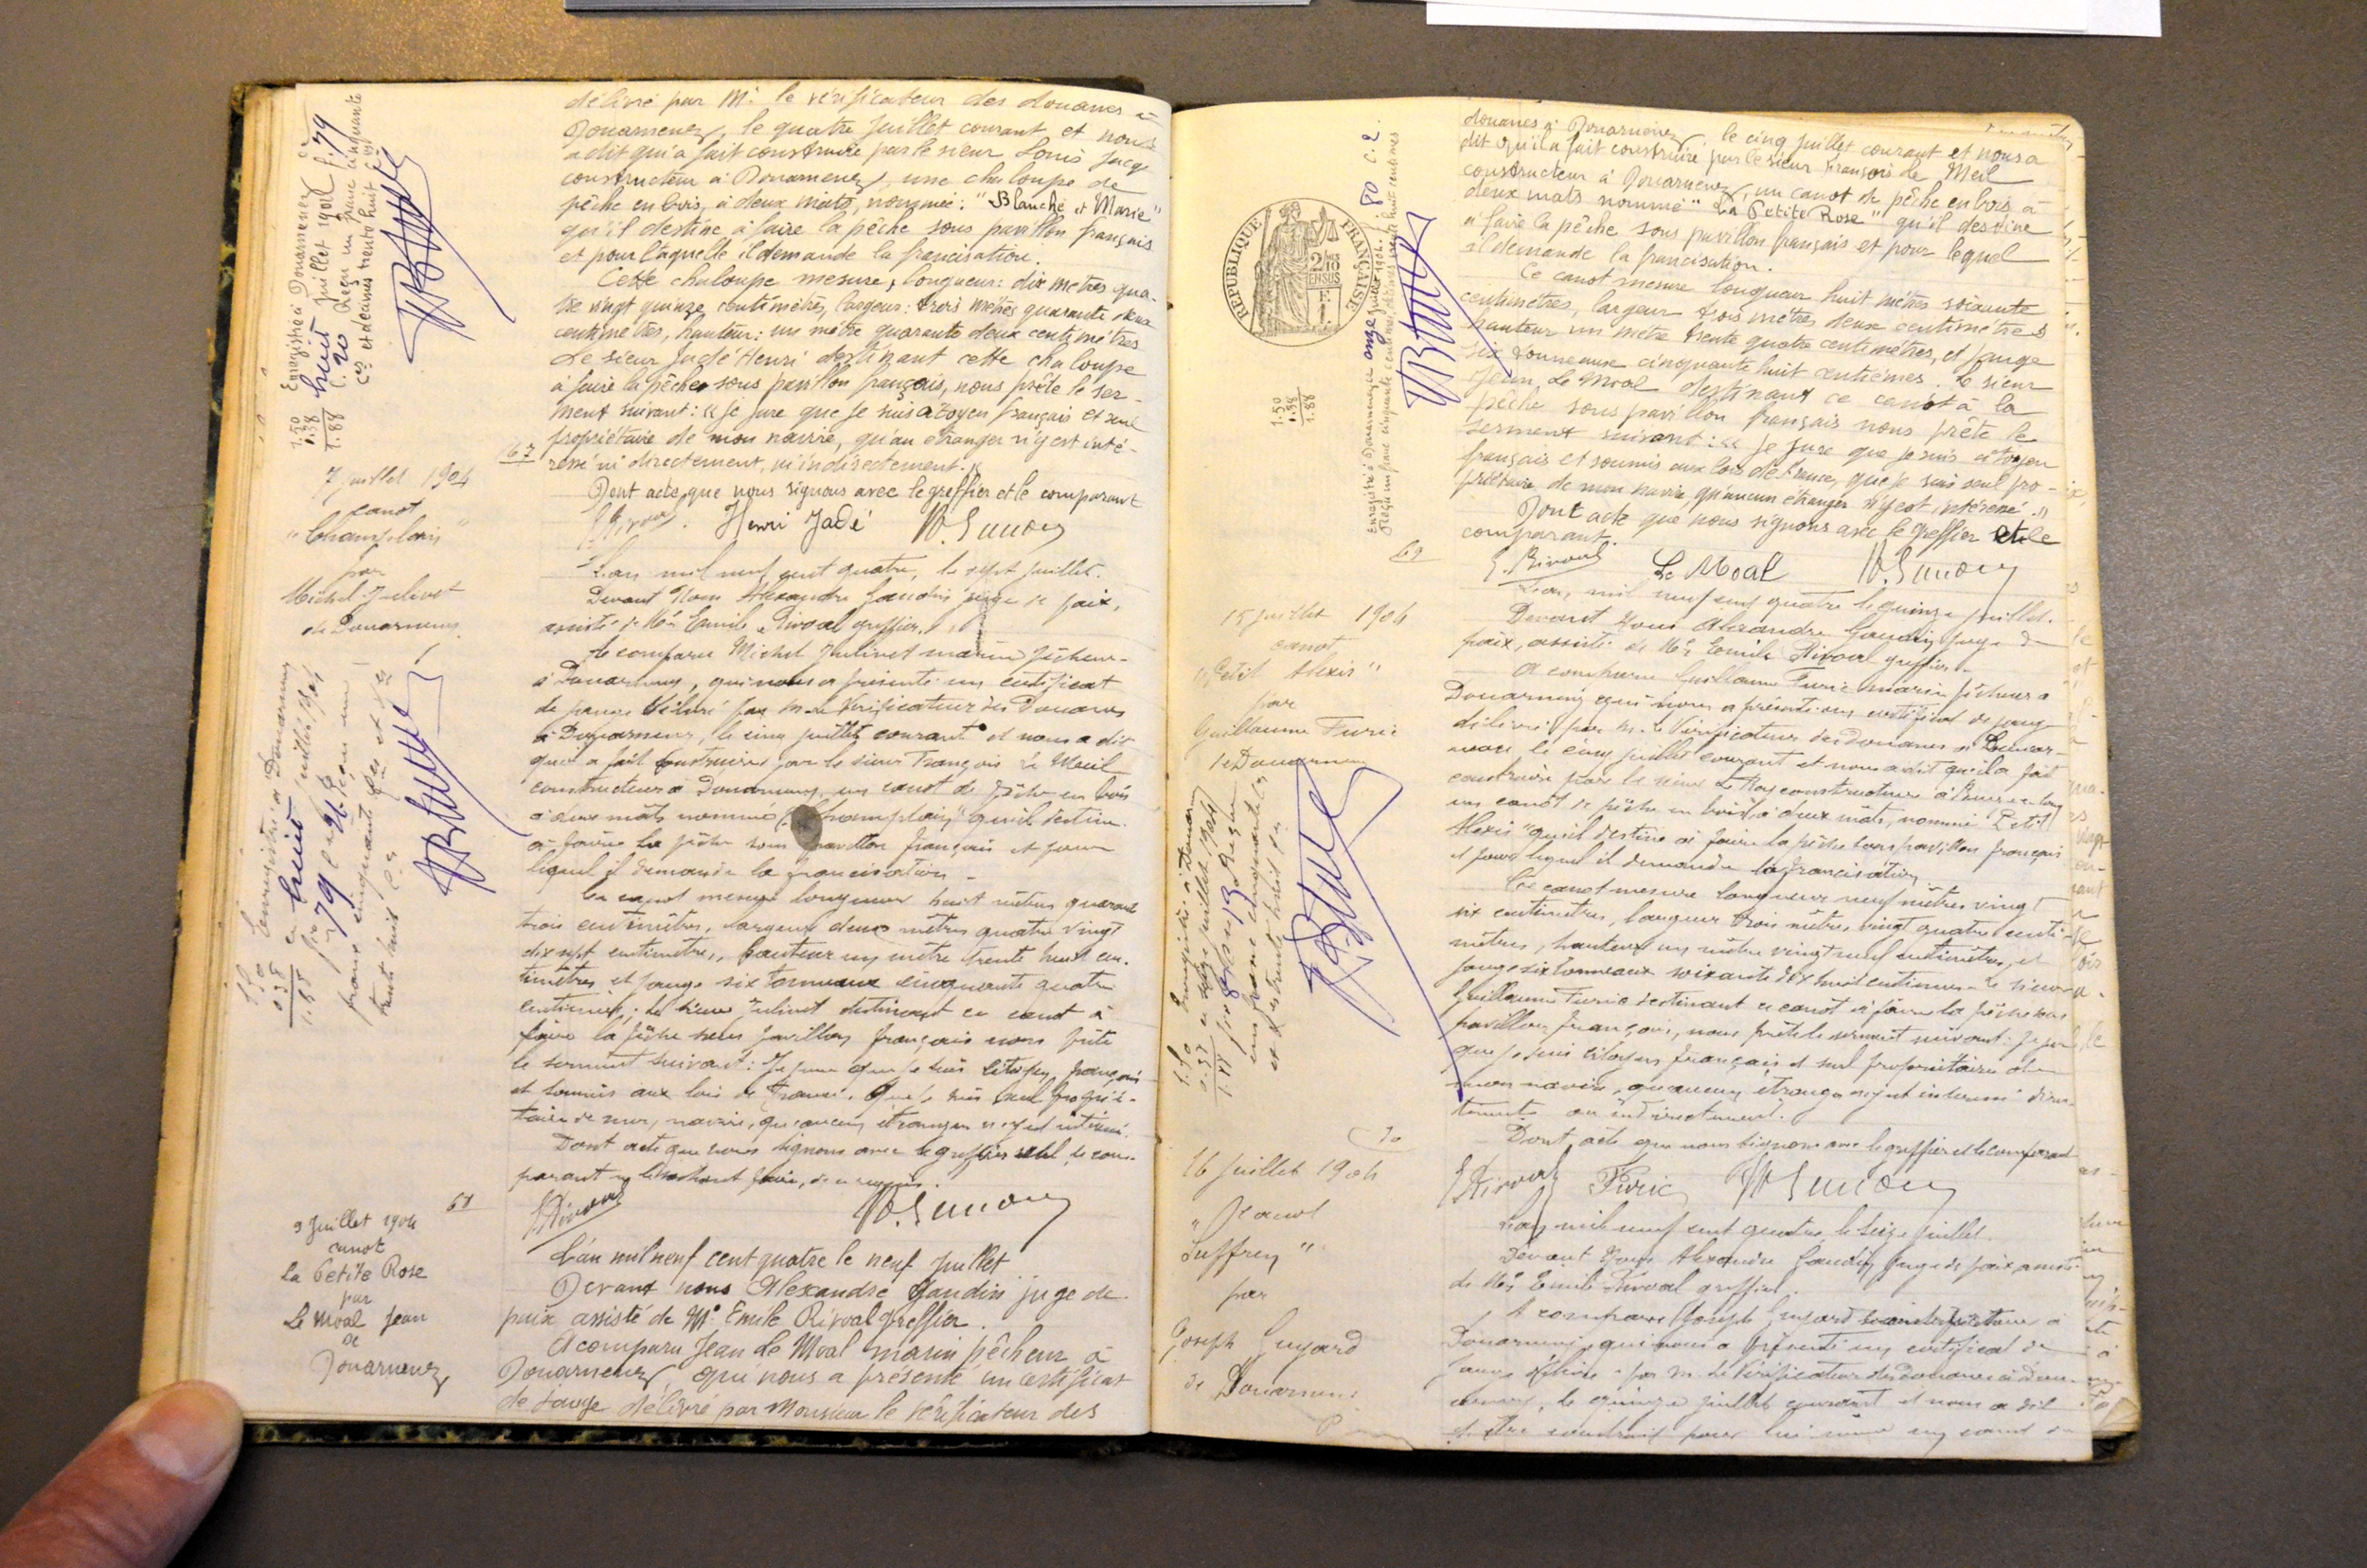 délivré par Mr le vérificateur des douanes à
Douarnenez, le quatre juillet courant et nous
a dit qu'a fait construire par le sieur Louis Jacq
constructeur à Douarnenez, une chaloupe de
pêche en bois, à deux mats, nommée: "Blanche et Marie"
qu'il destine à faire la pêche sous pavillon français
et pour laquelle il demande la francisation.
Cette chaloupe mesure, longueur: dix mètres qua-
tre vingt quinze centimètres, largeur: trois mètres quarante deux
centimètres, hauteur: un mètre quarante deux centimètres
Le sieur Jadé Henri destinant cette chaloupe
à faire la pêche sous pavillon français, nous prête le ser-
ment suivant: "je jure que je suis citoyen français et seul
propriétaire de mon navire, qu'au étranger n'y est inté-
ressé ni directement, ni indirectement."
Dont acte, que nous signons avec le greffier et le comparant
E. Rivoal Henri Jadé
Enregistré à Douarnenez le
huit juillet 1904 f. 79
c. 20 Reçu un franc cinquante
ces et décimes trente huit ces
1.50
0.38
1.88
67
7 juillet 1904
canot
"Champlain"
par
Michel Julivet
de Douarnenez
L'an mil neuf cent quatre, le sept juillet.
Devant Nous Alexandre Gaudin juge de paix,
assisté de Me Emile Rivoal greffier.
A comparu Michel Julivet marin pêcheur
à Douarnenez, qui nous a présenté un certificat
de jauge délivré par M. le Vérificateur des Douanes
à Douarnenez, le cinq juillet courant et nous a dit
qu'il a fait construire par le sieur François Le Meil
constructeur à Douarnenez, un canot de pêche en bois
à deux mâts nommé "Champlain" qu'il destine
à faire la pêche sous pavillon français et pour
lequel il demande la francisation.
Ce canot mesure longueur huit mètres quarante
trois centimètres, largeur deux mètres quatre vingt
dix sept centimètres, hauteur un mètre trente huit cen-
timètres et jauge six tonneaux cinquante quatre
centièmes; Le sieur Julivet destinant ce canot à
faire la pêche sous pavillon français nous prête
le serment suivant: Je jure que je suis citoyen français
et soumis aux lois de France. Que je suis seul proprié-
taire de mon navire, qu'aucun étranger n'y est intéressé.
Dont acte que nous signons avec le greffier seul, le com-
parant ne sachant faire, de ce requis.
E. Rivoal
Enregistré à Douarnenez
le huit juillet 1904
f° 79 c. 26 Reçu un
franc cinquante ces et ces
trente huit ces
1.50
0.38
1.88
68
9 Juillet 1904
canot
La Petite Rose
par
Le Moal Jean
de
Douarnenez
L'an mil neuf cent quatre le neuf Juillet
Devant nous Alexandre Gaudin juge de
paix assisté de Me Emile Rivoal greffier.
A comparu Jean Le Moal marin pêcheur à
Douarnenez qui nous a présenté un certificat
de Jauge délivré par Monsieur le Vérificateur des
douanes à Douarnenez, le cinq juillet courant et nous a
dit qu'il a fait construire par le sieur François Le Meil
constructeur à Douarnenez, un canot de pêche en bois à
deux mats nommé "La Petite Rose" qu'il destine
à faire la pêche sous pavillon français et pour lequel
il demande la francisation.
Ce canot mesure longueur huit mètres soixante
centimètres, largeur trois mètres deux centimètres
hauteur un mètre trente quatre centimètres, et jauge
six tonneaux cinquante huit centièmes. Le sieur
Jean Le Moal destinant ce canot à la
pêche sous pavillon français nous prête le
serment suivant: "Je jure que je suis citoyen
français et soumis aux lois de France, que je suis seul pro-
priétaire de mon navire, qu'aucun étranger n'y est intéressé."
Dont acte que nous signons avec le greffier et le
comparant.
E. Rivoal Le Moal
REPUBLIQUE FRANÇAISE
Enregistré à Douarnenez le onze juillet 1904 f. 80 c. 2.
Reçu un franc cinquante centimes, décimes trente huit centimes
1.50
0.38
1.88
69
15 juillet 1904
canot
"Petit Alexis"
par
Guillaume Furic
de Douarnenez
L'an mil neuf cent quatre le quinze juillet.
Devant Nous Alexandre Gaudin juge de
paix, assisté de Me Emile Rivoal greffier
A comparu Guillaume Furic marin pêcheur à
Douarnenez qui nous a présenté un certificat de jauge
délivré par M. le Vérificateur des douanes à Douar-
nenez le cinq juillet courant et nous a dit qu'il a fait
construire par le sieur Le Roy constructeur à
un canot de pêche en bois à deux mâts, nommé "Petit
Alexis" qu'il destine à faire la pêche sous pavillon français
et pour lequel il demande la francisation
Ce canot mesure longueur neuf mètres vingt
six centimètres, largeur trois mètres, vingt quatre centi-
mètres, hauteur un mètre vingt neuf centimètres, et
jauge six tonneaux soixante dix huit centièmes. Le sieur
Guillaume Furic destinant ce canot à faire la pêche sous
pavillon français, nous prête le serment suivant: Je jure
que je suis citoyen français et seul propriétaire de
mon navire, qu'aucun étranger n'y est intéressé direc-
tement ou indirectement.
Dont acte que nous signons avec le greffier et le comparant
E. Rivoal Furic
Enregistré à Douarnenez
juillet 1904
f° 80 c. 13 Reçu
un franc cinquante ces
et trente huit ces
1.50
0.38
1.88
70
16 juillet 1904
"Canot
Suffren"
par
Joseph Guyard
de Douarnenez
L'an mil neuf cent quatre, le seize juillet.
Devant Nous Alexandre Gaudin juge de paix assisté
de Me Emile Rivoal greffier.
A comparu Joseph Guyard à
Douarnenez, qui nous a présenté un certificat de
jauge délivré par M. le Vérificateur des douanes à Douar-
nenez, le quinze juillet courant et nous a dit
construit pour lui même un canot de